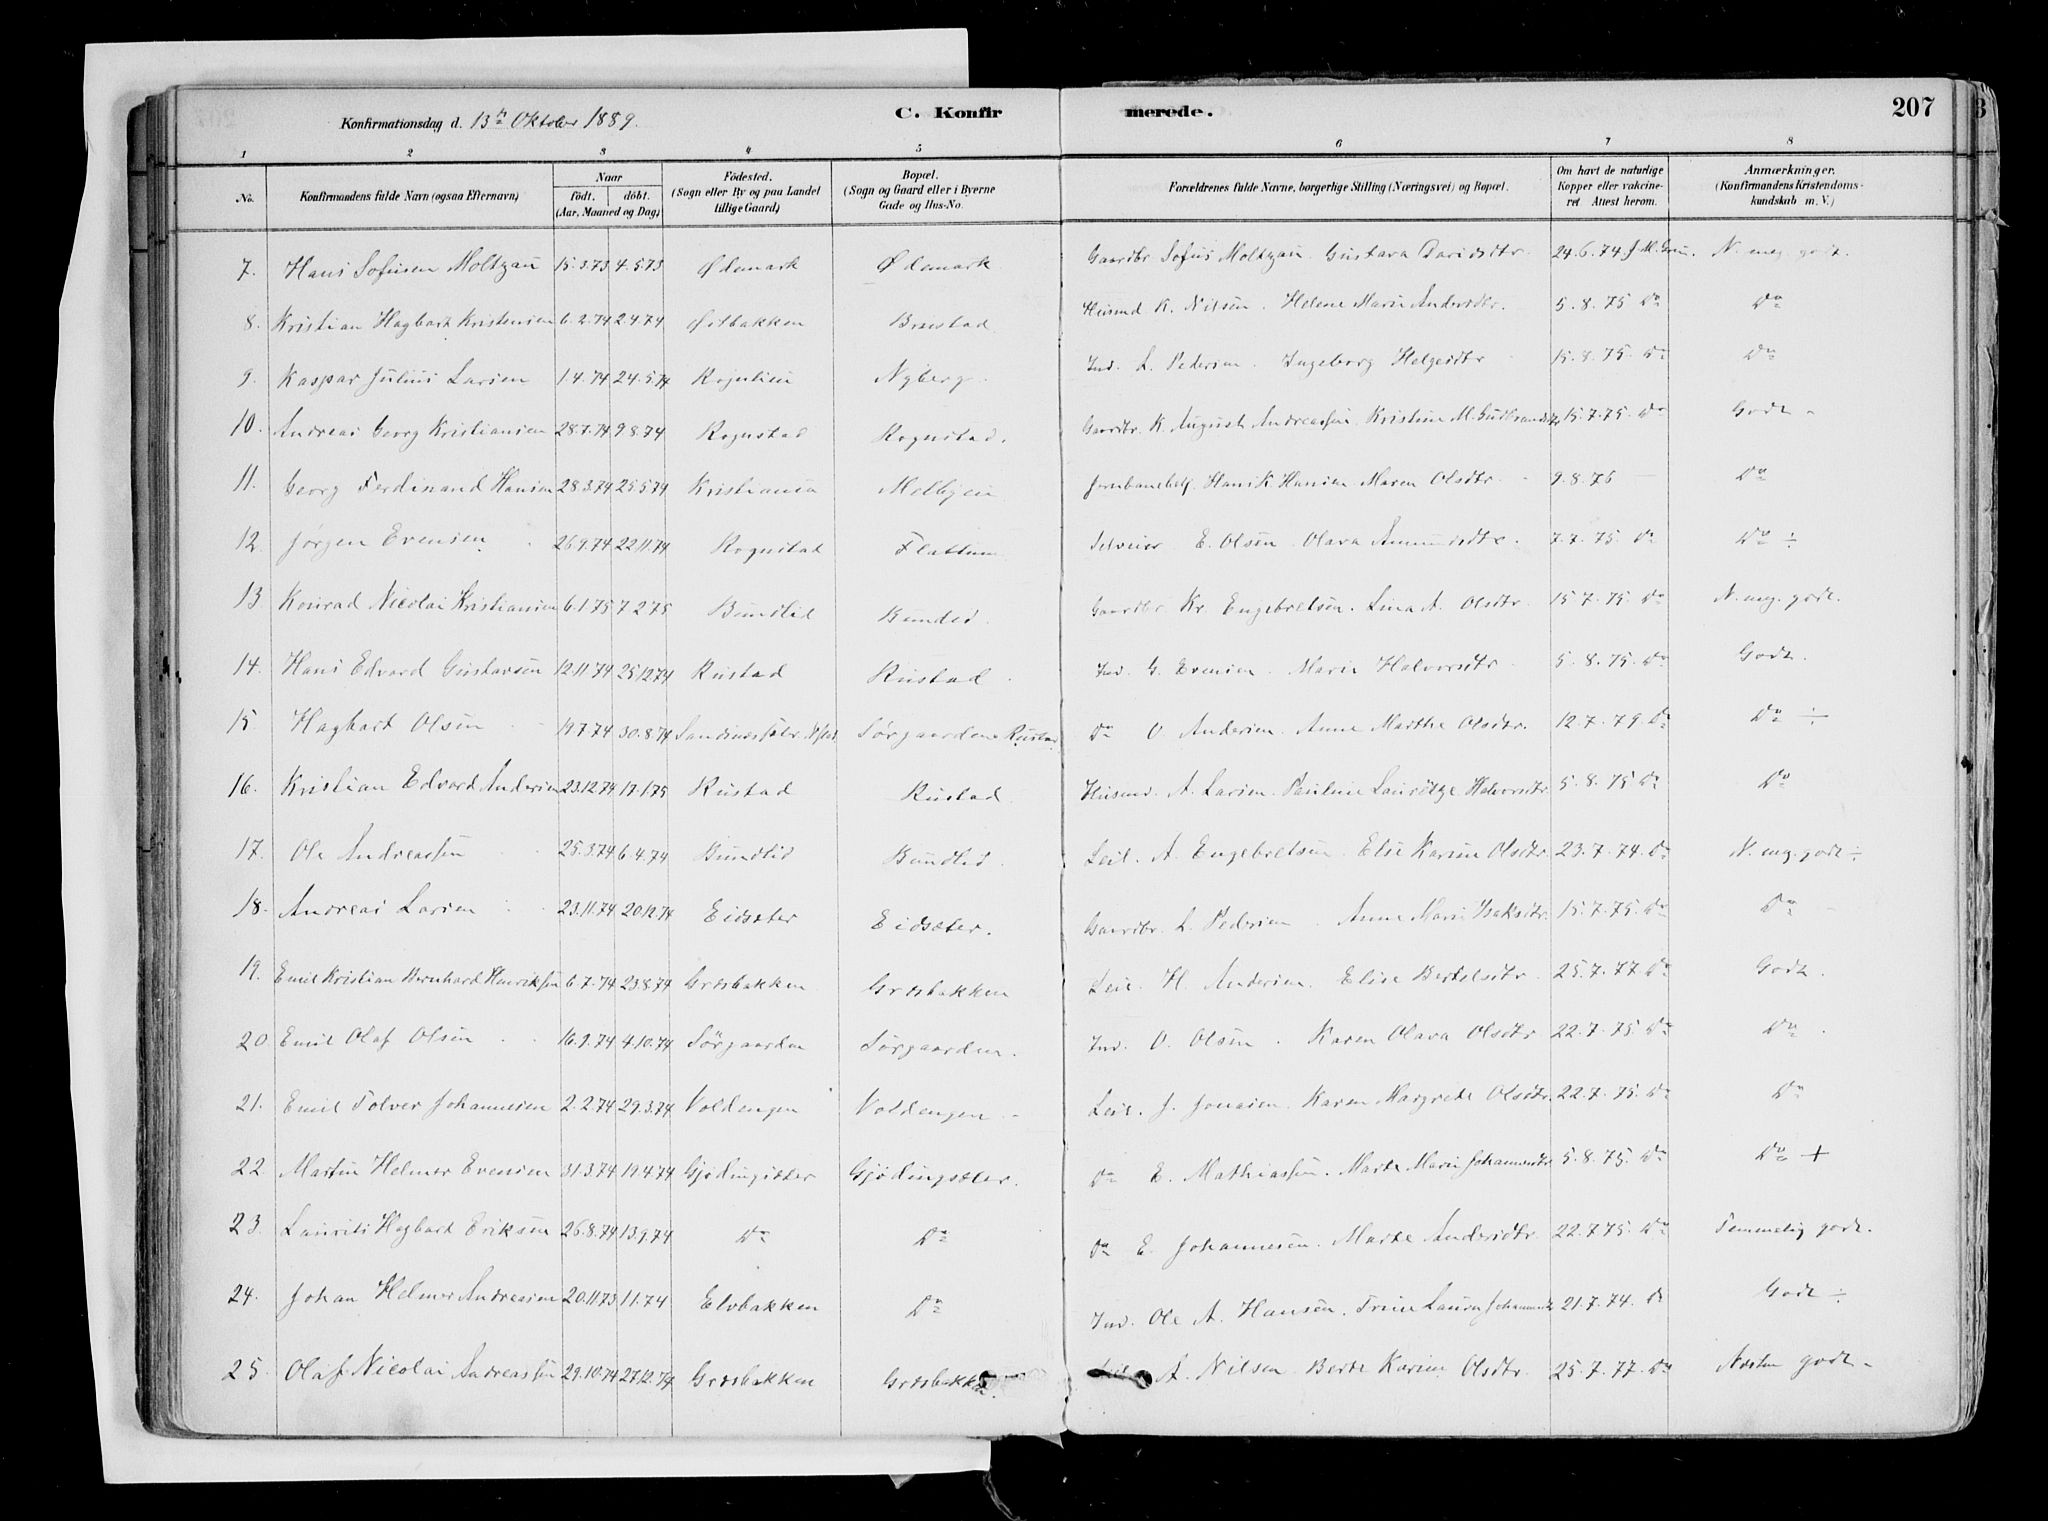 Konfirmationsdag d. 13de Oktober 1889.
C. Konfirmerede.
207
1 2 3 4 5 6 7 8
No. Konfirmandens fulde Navn (ogsaa Efternavn) Naar födt. döbt. (Aar, Maaned og Dag) Födested. (Sogn eller By og paa Landet tillige Gaard.) Bopæl. (Sogn og Gaard eller i Byerne Gade og Hus-No. Forældrenes fulde Navne, borgerlige Stilling (Næringsvei) og Bopæl. Om havt de naturlige Kopper eller vakcineret Attest herom. Anmærkninger. (Konfirmandens Kristendomskundskab m. V.)
7. Hans Sofusen Moltzau 15.3.73 4.5.73 Ødemark Ødemark Gaardbr. Sofus Moltzau. Gustava Davidsdtr. 24.6.74 N. meg. godt.
8. Kristian Hagbart Kristensen 6.2.74 2.4.74 Brustad Husmd K. Nilsen. Helene Marie Andersdtr. 5.8.75 Do Do
9. Kaspar Julius Larsen 1.4.74 24.5.74 Nyberg. Ind. L. Pedersen. Ingeborg Helgesdtr 15.8.75. Do Do
10. Andreas Georg Kristiansen 28.7.74 9.8.74 Rognstad Rognstad. Gaardbr. K. August Andreassen. Kristine M. Gudbrandsdtr 15.7.75. Do Godt
11. Georg Ferdinand Hansen 28.3.74 25.5.74 Kristiania Jernbanebetj. Hans K Hansen Maren Olsdtr. 9.8.76 Do
12. Jörgen Evensen 26.9.74 22.11.74 Rognstad Flattum E. Olsen Olava Amundsdtr. 7.7.75. Do Do ÷
13 Konrad Nicolai Kristiansen 6.1.75 7.2.75 Bundlid Bundlid. Gaardbr. Kr. Engebretsen. Lina A. Olsdtr. 15.7.75. Do N. meg. godt.
14. Hans Edvard Gustavsen 12.11.74 25.12.74 Rustad Rustad. Ind. G. Evensen. Marie Halvorsdtr 5.8.75. Do Godt.
15. Hagbart Olsen 19.7.74 30.8.74 Sörgaarden Rustad Do O Andersen. Anne Marthe Olsdtr. 12.7.79. Do Do ÷
16. Kristian Edvard Andersen 23.12.74 17.1.75 Rustad Rustad. Husmd. A. Larsen. Pauline Halvorsdtr. 5.8.75 Do Do
17. Ole Andreassen 25.3.74 6.4.74 Bundlid Bundlid. Leil. A. Engebretsen Elise Karine Olsdtr. 23.7.74. Do N. meg. godt ÷
18. Andreas Larsen 23.11.74 20.12.74 Eidsæter Eidsæter. Gaardbr. L. Pedersen. Anne Marie Isaksdtr. 15.7.75. Do Do
19. Emil Kristian Bernhard Henriksen 6.7.74 23.8.74 Græsbakken Græsbakken Leil. H. Andersen. Elise Bertelsdtr. 25.7.77 Do Godt.
20 Emil Olaf Olsen 16.9.74 4.10.74 Sörgaarden Sörgaarden. Ind. O. Olsen. Karen Olava Olsdtr 22.7.75. Do Do.
21. Emil Tolver Johannesen 2.2.74 29.3.74 Voldengen Voldengen Leil. J. Jonasen. Karen Margrete Olsdtr. 22.7.75. Do Do
22 Martin Helmer Evensen 31.3.74 19.4.74 Gjödingsæter Gjödingsæter. Do E. Mathiassen. Marte Marie Johannesdtr 5.8.75. Do Do +
23. Laurits Hagbart Eriksen 26.8.74 13.9.74 Do Do Do E. Johannesen. Marte Andersdtr. 22.7.75. Do Temmelig godt.
24. Johan Helmer Andreasen 20.11.73 1.1.74 Elvbakken Do Ind. Ole A. Hansen. Trine Laura Johannesdtr 21.7.74. Do Godt ÷
25. Olaf Nicolai Andreassen 29.10.74 27.12.74 Græsbakken Græsbakken. Leil. A. Nilsen Berte Karine Olsdtr. 25.7.77. Do Næsten godt